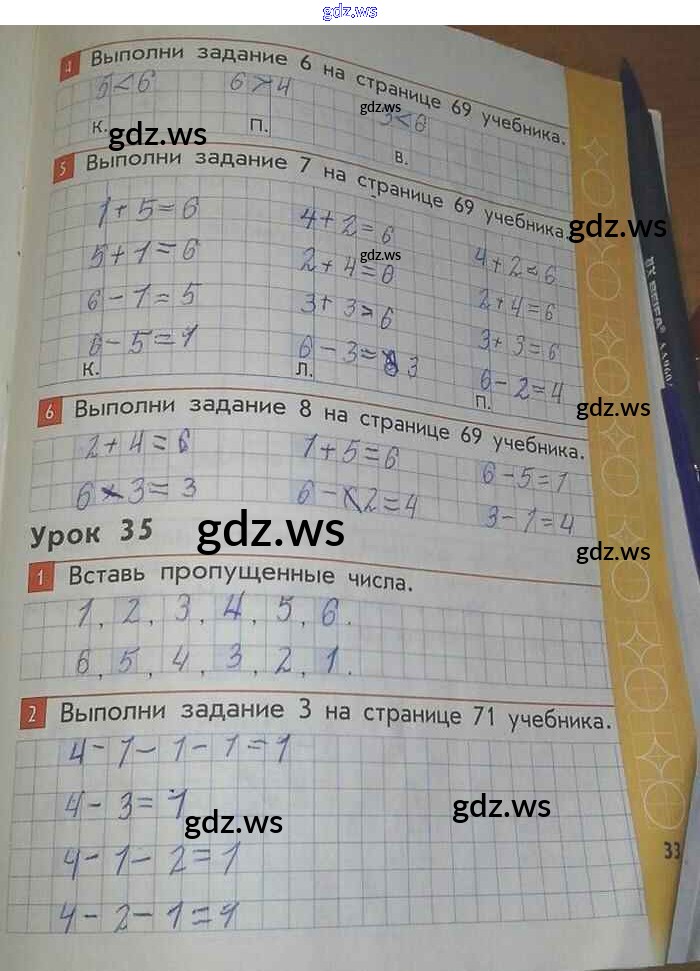 gdz.ws
4 Выполни задание 6 на странице 69 учебника.
5<6 6>4 3<6
gdz.ws
К. П. В.
gdz.ws
5 Выполни задание 7 на странице 69 учебника.
gdz.ws
1+5=6 4+2=6 4+2=6
gdz.ws
5+1=6 2+4=6 2+4=6
6-1=5 3+3=6 3+3=6
6-5=1 6-3=3 6-2=4
К. Л. П.
gdz.ws
6 Выполни задание 8 на странице 69 учебника.
2+4=6 1+5=6 6-5=1
6-3=3 6-2=4 3-1=4
Урок 35
gdz.ws
gdz.ws
1 Вставь пропущенные числа.
1, 2, 3, 4, 5, 6.
6, 5, 4, 3, 2, 1.
2 Выполни задание 3 на странице 71 учебника.
4-1-1-1=1
4-3=1
gdz.ws
gdz.ws
4-1-2=1
4-2-1=1
33